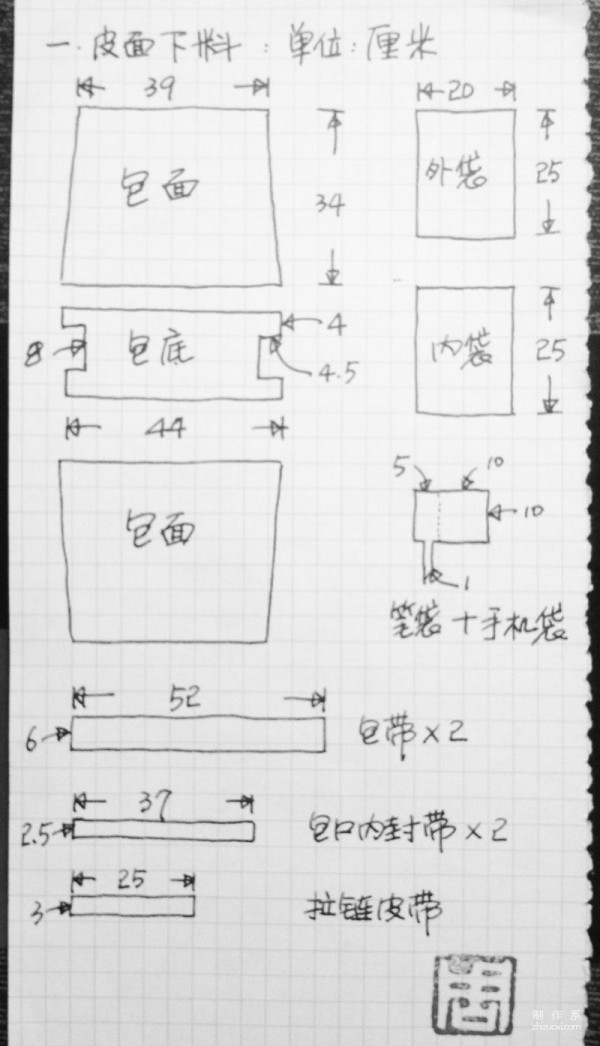 一.皮面下料:单位:厘米
39
包面
34
20
外袋
25
8
包底
4
4.5
44
内袋
25
包面
5
10
10
1
笔袋+手机袋
52
6
包带×2
37
2.5
包口内封带×2
25
3
拉链皮带
制作系
zhizuoxi.com